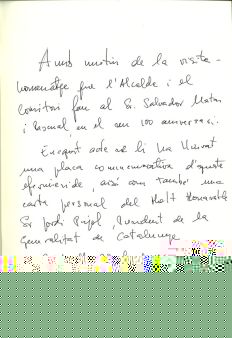 Amb motiu de la visita-
homenatge que l'Alcalde i el
consistori fan al Sr. Salvador Matas
i Pascual, en el seu 100 aniversari.
En aquest acte se li ha lliurat
una placa commemorativa d'aquesta
efemèride, així com també una
carta personal del Molt Honorable
Sr Jordi Pujol, President de la
Generalitat de Catalunya